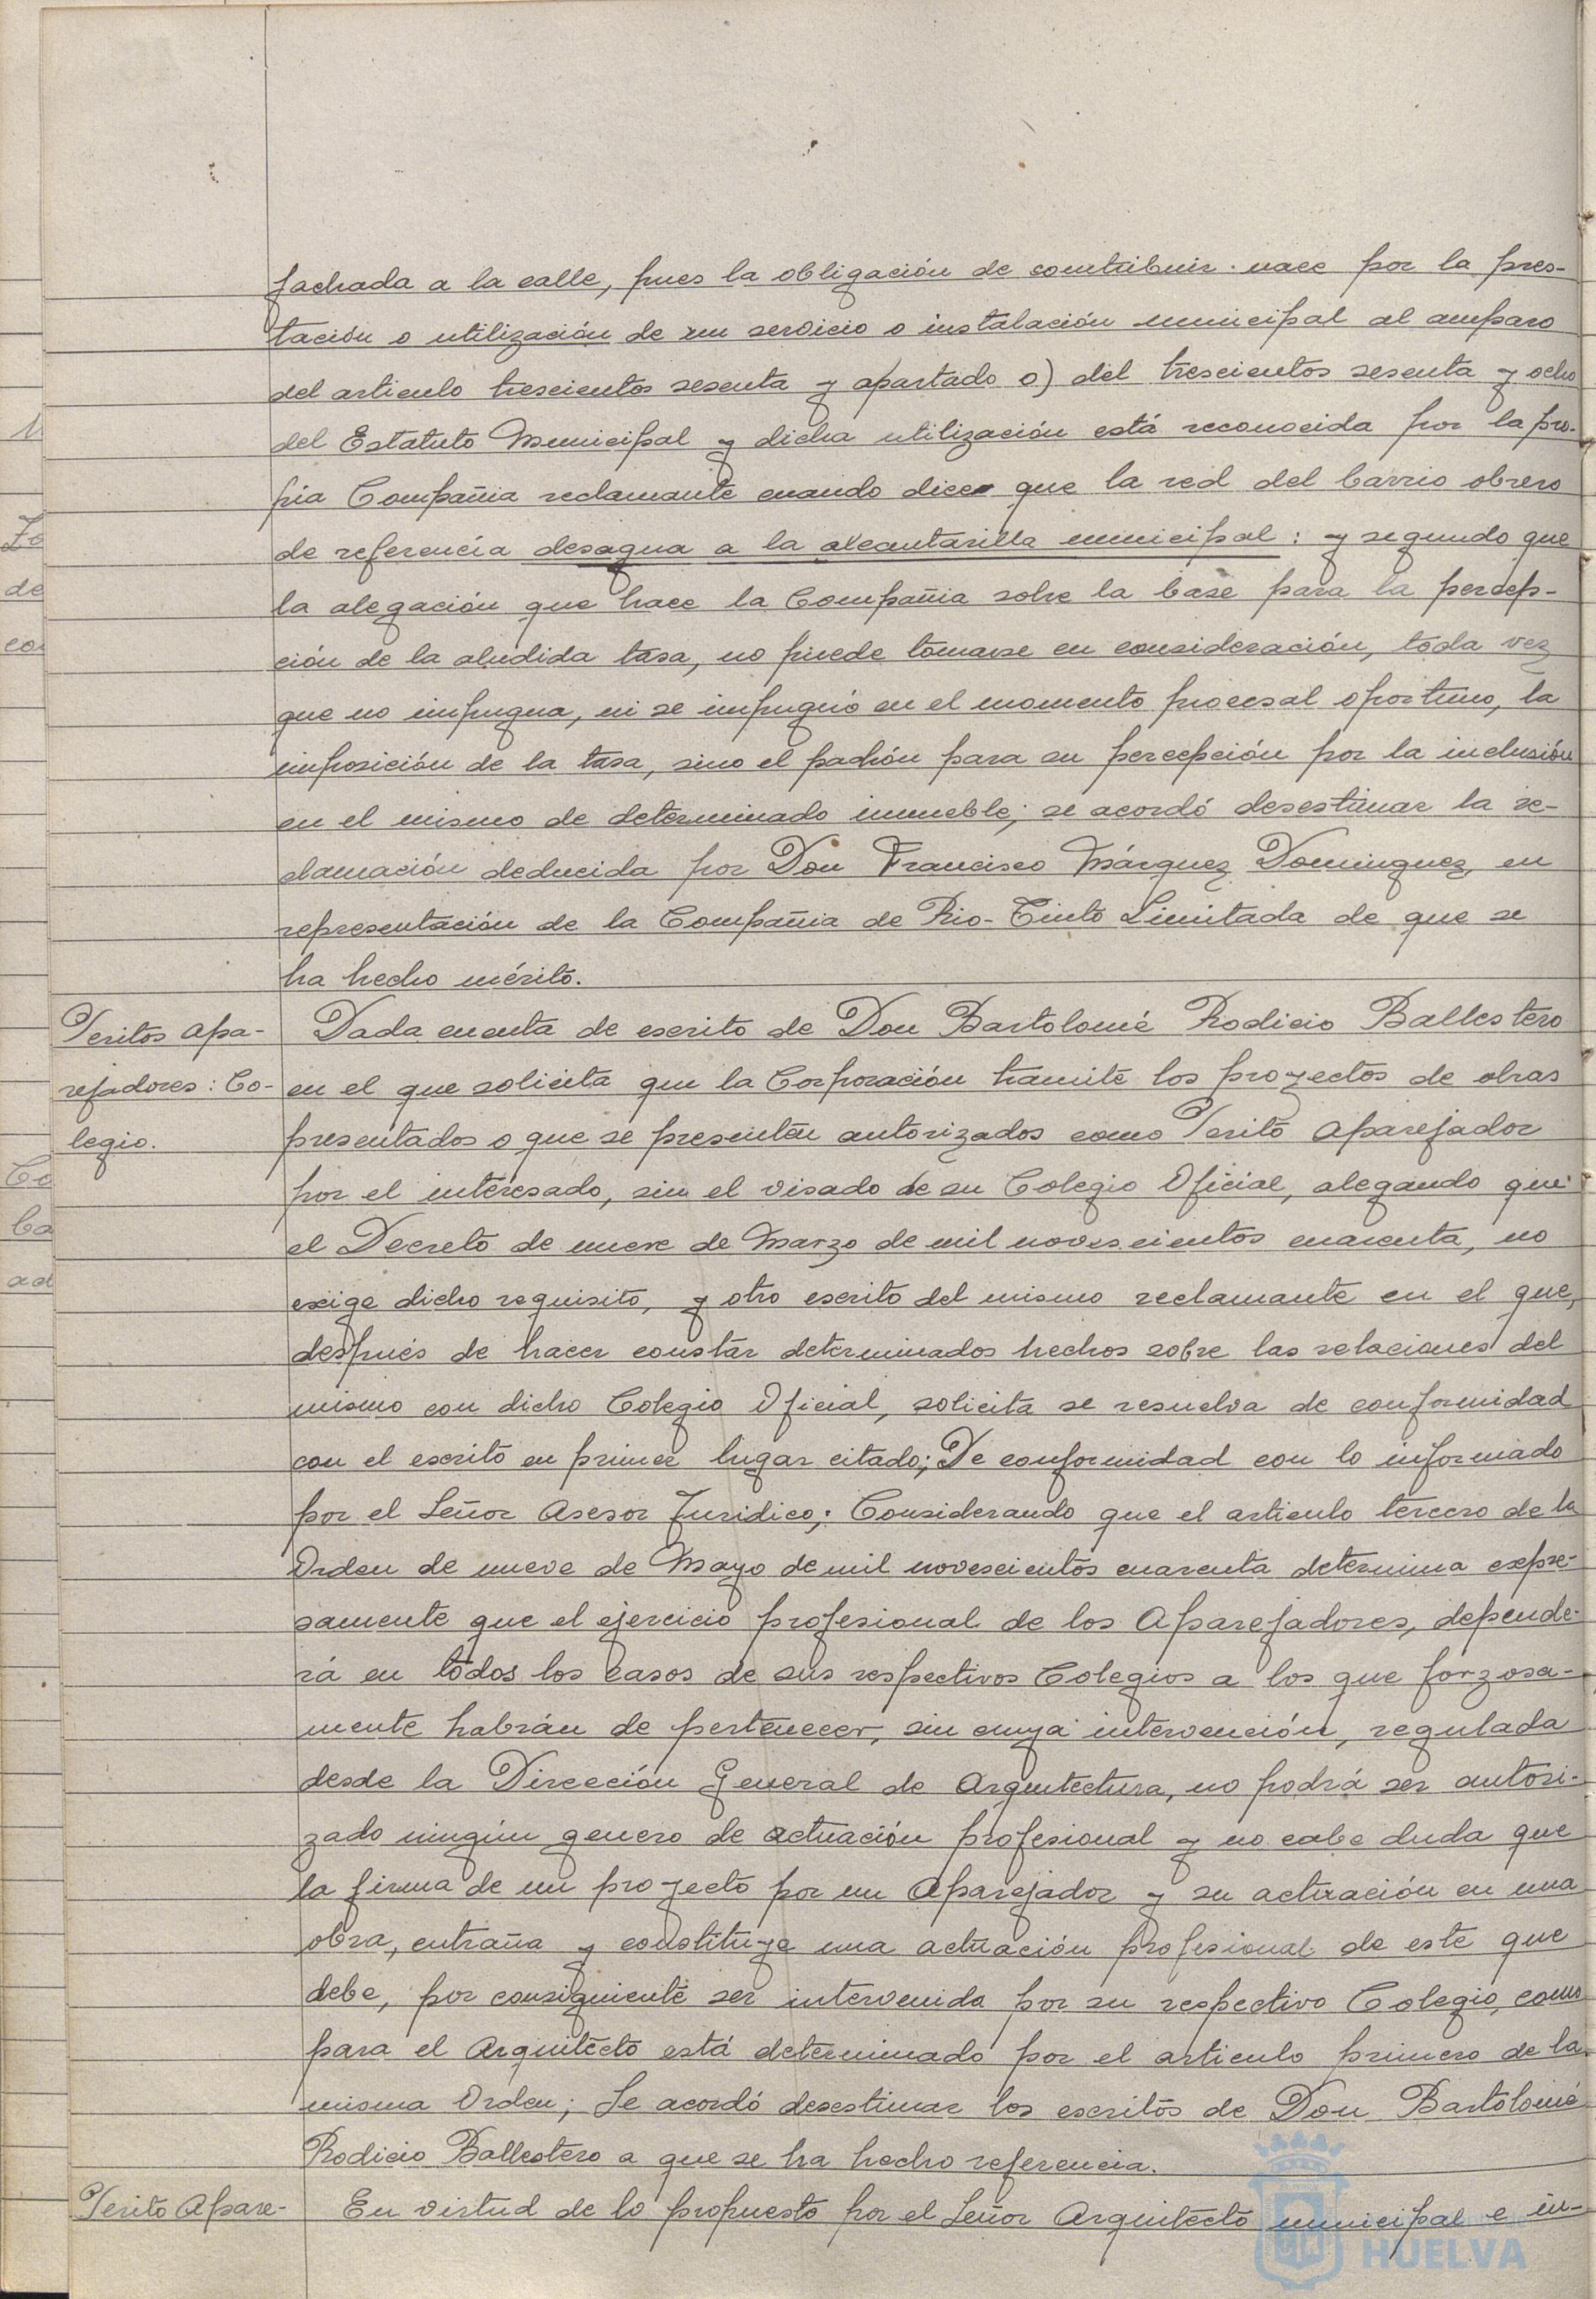 fachada a la calle, pues la obligación de contribuir nace por la pres-
tación o utilización de un servicio o instalación municipal al amparo
del articulo trescientos sesenta y apartado o) del trescientos sesenta y ocho
del Estatuto Municipal y dicha utilización está reconocida por la pro-
pia Compañia reclamante cuando dice que la red del barrio obrero
de referencia desagua a la alcantarilla municipal: y segundo que
la alegación que hace la Compañia sobre la base para la percep-
ción de la aludida tasa, no puede tomarse en consideración, toda vez
que no impugna, ni se impugnó en el momento procesal oportuno, la
imposición de la tasa, sino el padrón para su percepción por la inclusión
en el mismo de determinado inmueble; se acordó desestimar la re-
clamación deducida por Don Francisco Márquez Dominguez, en
representación de la Compañia de Rio-Tinto Limitada de que se
ha hecho mérito.
Peritos Apa-
rejadores: Co-
legio.
Dada cuenta de escrito de Don Bartolomé Rodicio Ballestero
en el que solicita que la Corporación tramite los proyectos de obras
presentados o que se presenten autorizados como Perito Aparejador
por el interesado, sin el visado de su Colegio Oficial, alegando que
el Decreto de nueve de Marzo de mil novescientos cuarenta, no
exige dicho requisito, y otro escrito del mismo reclamante en el que,
después de hacer constar determinados hechos sobre las relaciones del
mismo con dicho Colegio Oficial, solicita se resuelva de conformidad
con el escrito en primer lugar citado; De conformidad con lo informado
por el Señor Asesor Juridico; Considerando que el articulo tercero de la
Orden de nueve de Mayo de mil novescientos cuarenta determina expre-
samente que el ejercicio profesional de los Aparejadores, depende-
rá en todos los casos de sus respectivos Colegios a los que forzosa-
mente habrán de pertenecer, sin cuya intervención, regulada
desde la Dirección General de Arquitectura, no podrá ser autori-
zado ningún genero de actuación profesional y no cabe duda que
la firma de un proyecto por un Aparejador y su actuación en una
obra, entraña y constituye una actuación profesional de este que
debe, por consiguiente ser intervenida por su respectivo Colegio, como
para el Arquitecto está determinado por el articulo primero de la
misma Orden; Se acordó desestimar los escritos de Don Bartolomé
Rodicio Ballestero a que se ha hecho referencia.
Perito Apare-
En virtud de lo propuesto por el Señor Arquitecto municipal e in-
HUELVA